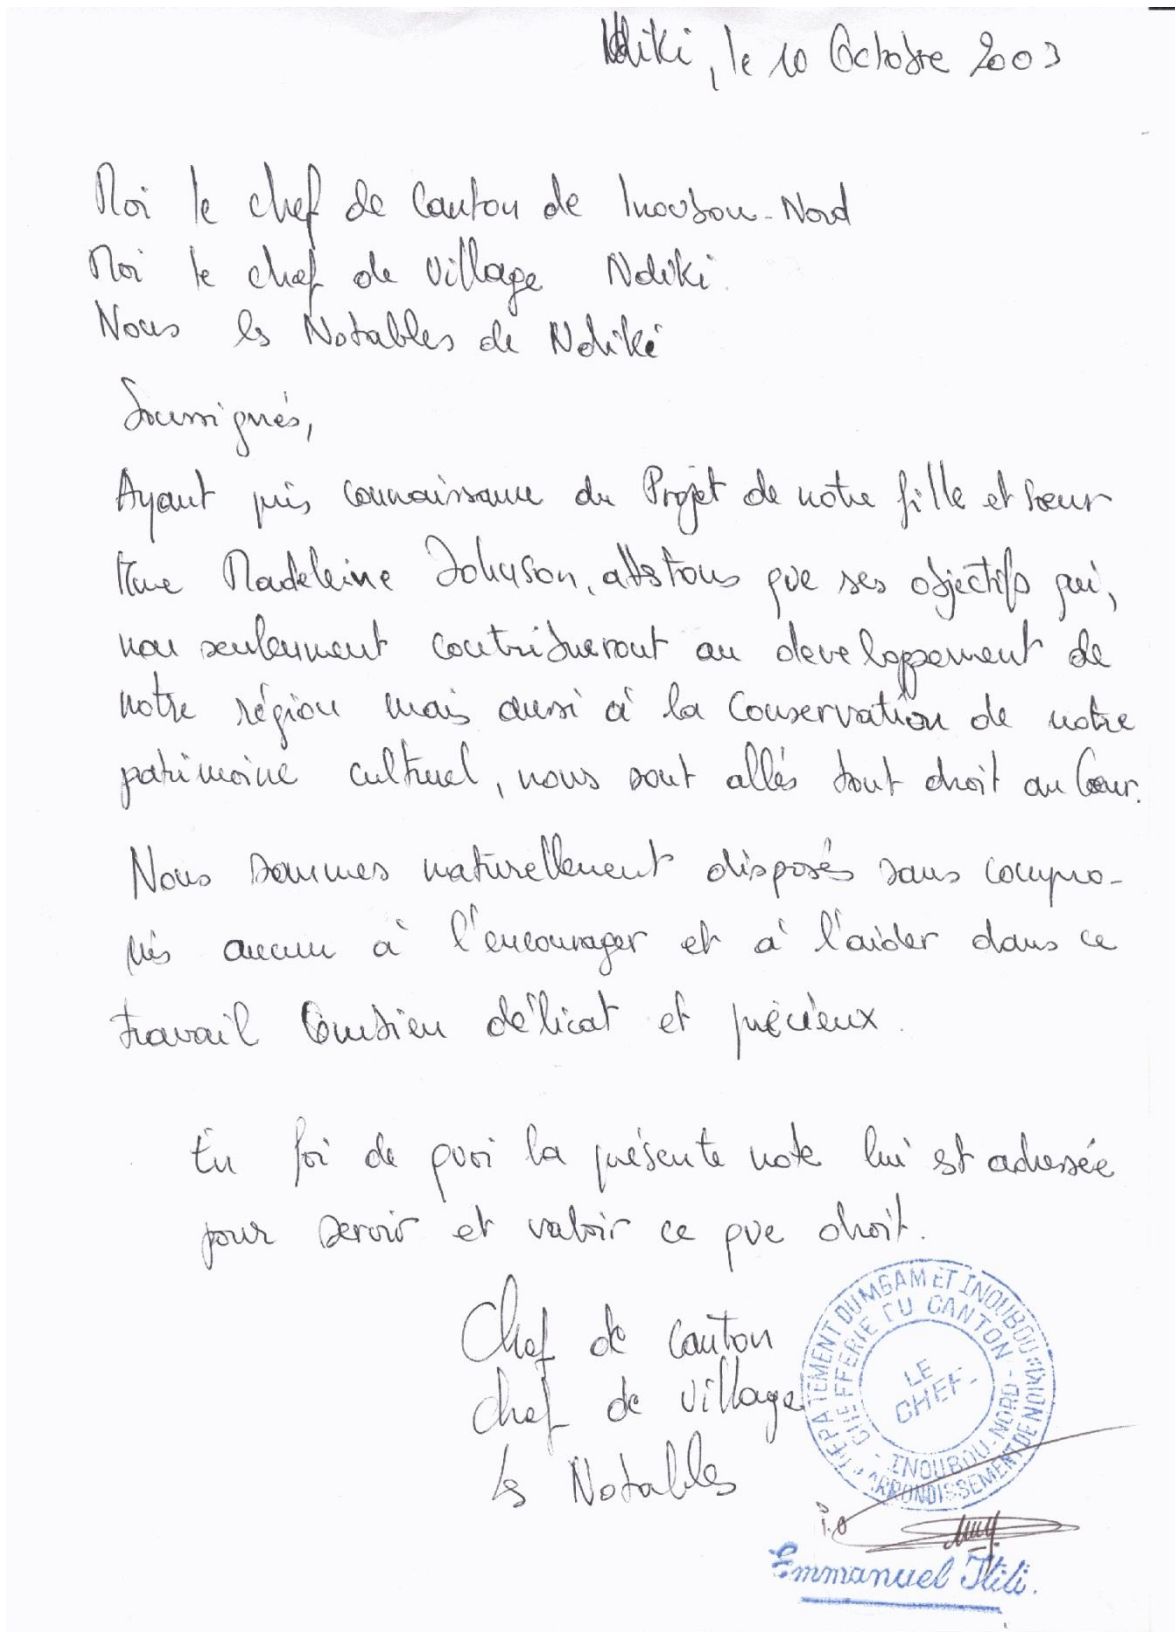 Ndiki, le 10 Octobre 2003
Moi le chef de Canton de Inoubou-Nord
Moi le chef de village Ndiki.
Nous les Notables de Ndiki
Soussignés,
Ayant pris connaissance du Projet de notre fille et soeur
Mme Madeleine Johnson, attestons que ses objectifs qui,
non seulement contribueront au developpement de
notre région mais aussi à la Conservation de notre
patrimoine culturel, nous sont allés tout droit au Coeur.
Nous sommes naturellement disposés sans compro-
mis aucun à l'encourager et à l'aider dans ce
travail Combien délicat et précieux.
En foi de quoi la présente note lui est adressée
pour servoir et valoir ce que droit.
Chef de canton
chef de village
les Notables
DEPARTEMENT DU MBAM ET INOUBOU
ARRONDISSEMENT DE NDIKI
CHEFFERIE DU CANTON
- INOUBOU-NORD -
LE
CHEF-
Emmanuel Itili.